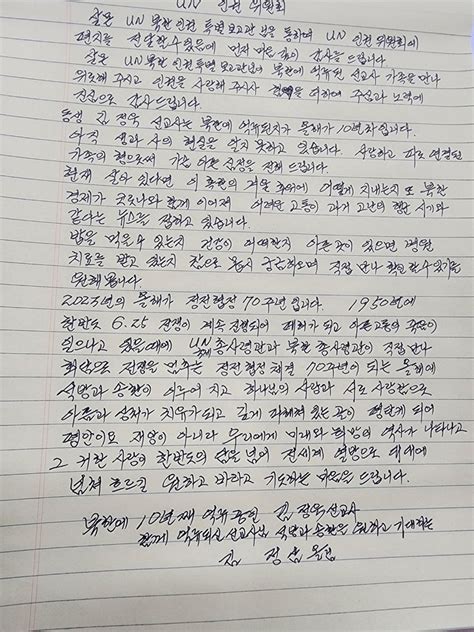 UN 인권 위원회
살몬 UN 북한 인권 특별 보고관님을 통하여 UN 인권 위원회에
편지를 전달할 수 있음에 먼저 마음 깊이 감사를 드립니다
살몬 UN 북한 인권 특별 보고관님이 북한에 억류된 선교사 가족을 만나
위로해 주시고 인권을 사랑해 주시사 을 더하여 주심과 노력에
진심으로 감사드립니다.
동생 김정욱 선교사는 북한에 억류된지가 올해가 10년차입니다.
아직 생과 사의 현실은 알지 못하고 있습니다. 사랑하고 피로 연결된
가족의 형으로써 가슴 아픈 심정을 전해 드립니다.
현재 살아 있다면 이 혹한의 겨울 추위에 어떻게 지내는지 또 북한
경제가 코로나와 함께 이어져 어려운 고통이 과거 고난의 행군 시기와
같다는 뉴스를 접하고 있습니다.
밥을 먹을 수 있는지 건강이 어떠한지 아픈 곳이 있으면 병원
치료를 받고 있는지 참으로 몹시 궁금하오며 직접 만나 확인할 수 있기를
원해 봅니다.
2023년의 올해가 정전협정 70주년 입니다. 1950년에
한반도 6.25 전쟁이 계속 진행되어 폐허가 되고 아픈 고통의 죽음이
일으나고 있을때에 UN 총사령관과 북한 총사령관이 직접 만나
희망으로 전쟁을 멈추는 정전협정 체결 70주년이 되는 올해에
석방과 송환이 이루어 지고 하나님의 사랑과 서로 사랑함으로
아픔과 상처가 치유가 되고 깊게 패여 있는 곳이 평탄케 되어
평안이요 재앙이 아니라 우리에게 미래와 희망의 역사가 나타나고
그 귀한 사랑이 한반도의 땅을 넘어 전세계 열방으로 대해에
넘쳐 흐르길 원하고 바라고 기도하는 마음을 드립니다.
북한에 10년째 억류중인 김정욱 선교사
함께 억류되신 선교사님 석방과 송환을 원하고 기대하는
김 정삼 올림